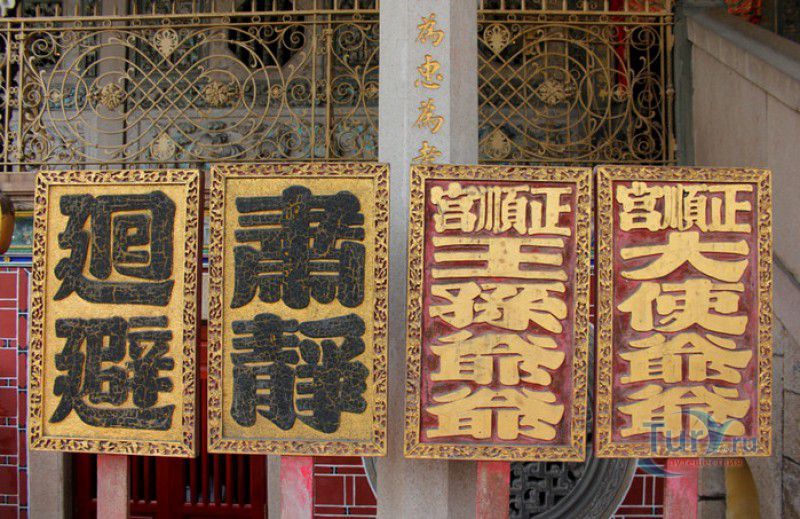 為忠為
正順宮
大使爺爺
正順宮
王孫爺爺
肅靜
迴避
TurY.ru
путешествия